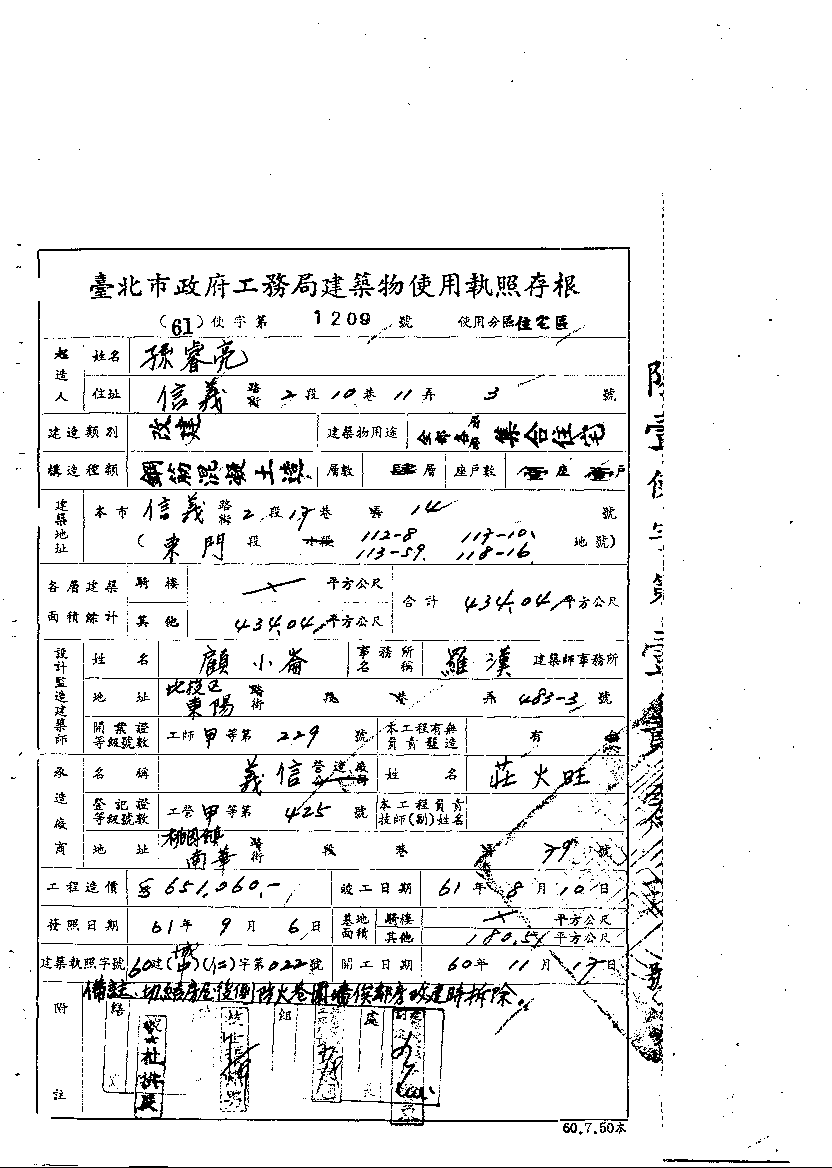 臺北市政府工務局建築物使用執照存根
(61)使字第 1209 號 使用分區住宅區
起造人 姓名 孫睿亮
住址 信義路街 2段10巷11弄 3 號
建造類別 改建 建築物用途 全部各層 集合住宅
構造種類 鋼筋混凝土造 層數 肆層 座戶數 壹座 壹戶
建築地址 本市 信義路街 2段17巷 弄 14 號
(東門段 小段 112-8 117-10 地號)
113-59 118-16
各層建築面積綜計 騎樓 平方公尺 合計 434.04平方公尺
其他 434.04平方公尺
設計監造建築師 姓名 顧小崙 事務所名稱 羅漢 建築師事務所
地址 北投區東陽路街 段 巷 弄 483-3號
開業證等級號數 工師甲等第229號 本工程有無負責監造 有 無
承造廠商 名稱 義信營造廠 姓名 莊火旺
登記證等級號數 工營甲等第425號 本工程負責技師(副)姓名
地址 桃園鎮南華路街 段 巷 39號
工程造價 $651,060.- 竣工日期 61年8月10日
發照日期 61年9月6日 基地面積 騎樓 平方公尺
其他 180.51平方公尺
建築執照字號 60建(城中)(仁)字第022號 開工日期 60年11月17日
附註 備註、切結房屋後側防火巷圍牆俟鄰房改建時拆除。
組 處
60.7.50本